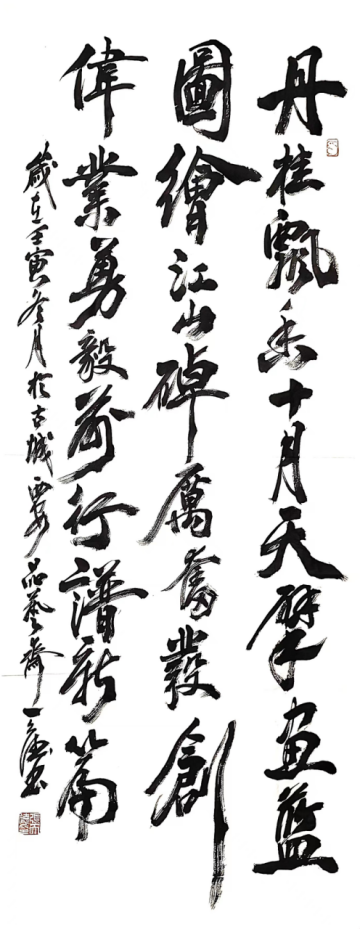 丹桂飄香十月天擘畫藍
圖繪江山踔厲奮發創
偉業勇毅前行譜新篇
歲在壬寅冬月於古城西安品藝齋